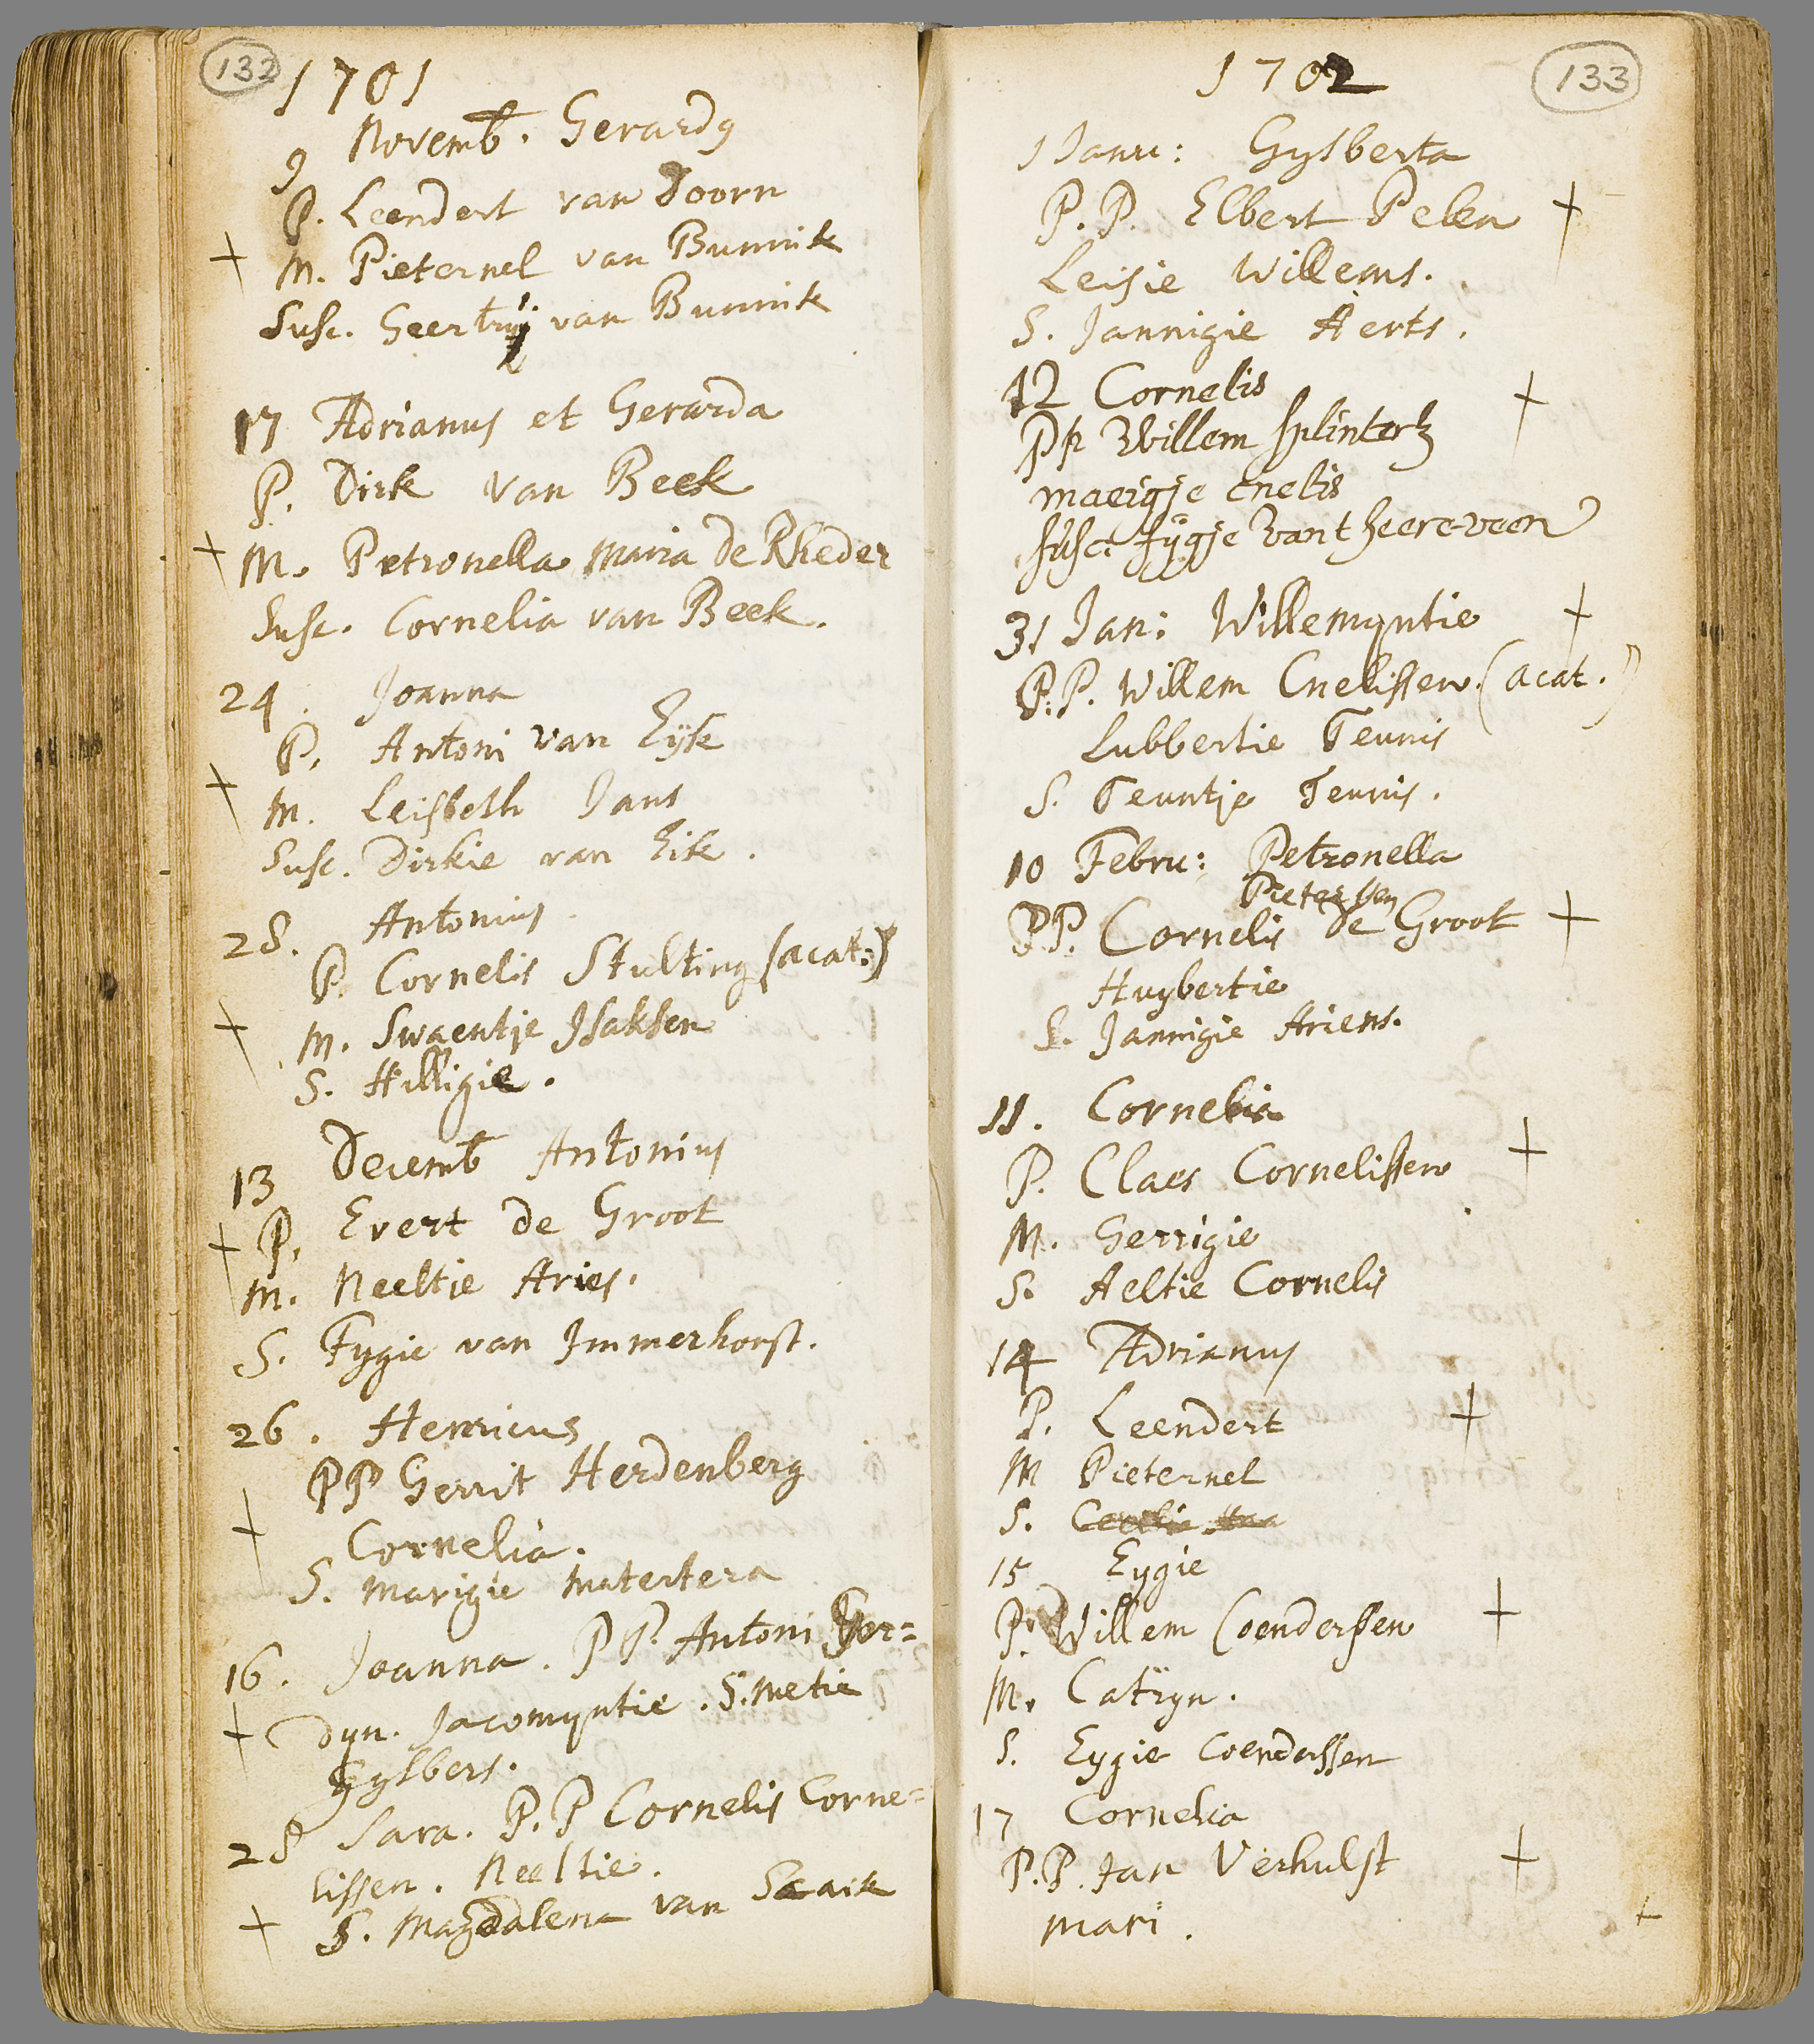 132
1701
9 Novemb. Gerardg
P. Leendert van Doorn
+ M. Pieternel van Bunnik
Susc. Geertruij van Bunnik
17 Adrianus et Gerarda
P. Dirk van Beek
+ M. Petronella Maria de Rheder
Susc. Cornelia van Beek.
24. Joanna
P. Antoni van Eijk
+ M. Leisbeth Jans
Susc. Dirkie van Eik.
28. Antonius.
P. Cornelis Stulting (acat:)
+ M. Swaentje Isaksen
S. Hilligie.
13 Decemb Antonius
+ P. Evert de Groot
M. Neeltie Aries.
S. Fygie van Immerhorst.
26. Henricus
PP Gerrit Herdenberg
+ Cornelia.
S. Marigie matertera
16. Joanna. PP. Antoni Gor=
+ dyn. Jacomyntie. S. Metie
Gysbers.
28 Sara. P.P Cornelis Corne=
lissen. Neeltie.
+ S. Magdalena van Schaik
133
1702
1 Janu: Gysberta
P.P. Elbert Pelen +
Leisie Willems.
S. Jannigie Aerts.
12 Cornelis +
PP Willem Splintertz
maeigje Cnelis
susc: fijgje van t heere-veen
31 Jan: Willemyntie +
P.P. Willem Cnelissen (acat.)
Lubbertie Teunis
S. Teuntje Teunis.
10 Febru: Petronella
Pietersen
PP. Cornelis de Groot +
Huybertie
S. Jannigie Ariens.
11. Cornelia
P. Claes Cornelissen +
M. Gerrigie
S. Aeltie Cornelis
14 Adrianus
P. Leendert +
M Pieternel
S.
15 Eygie
P. Willem Coenderssen +
M. Catryn.
S. Eygie Coenderssen
17 Cornelia
P.P. Jan Verhulst +
mari.
+